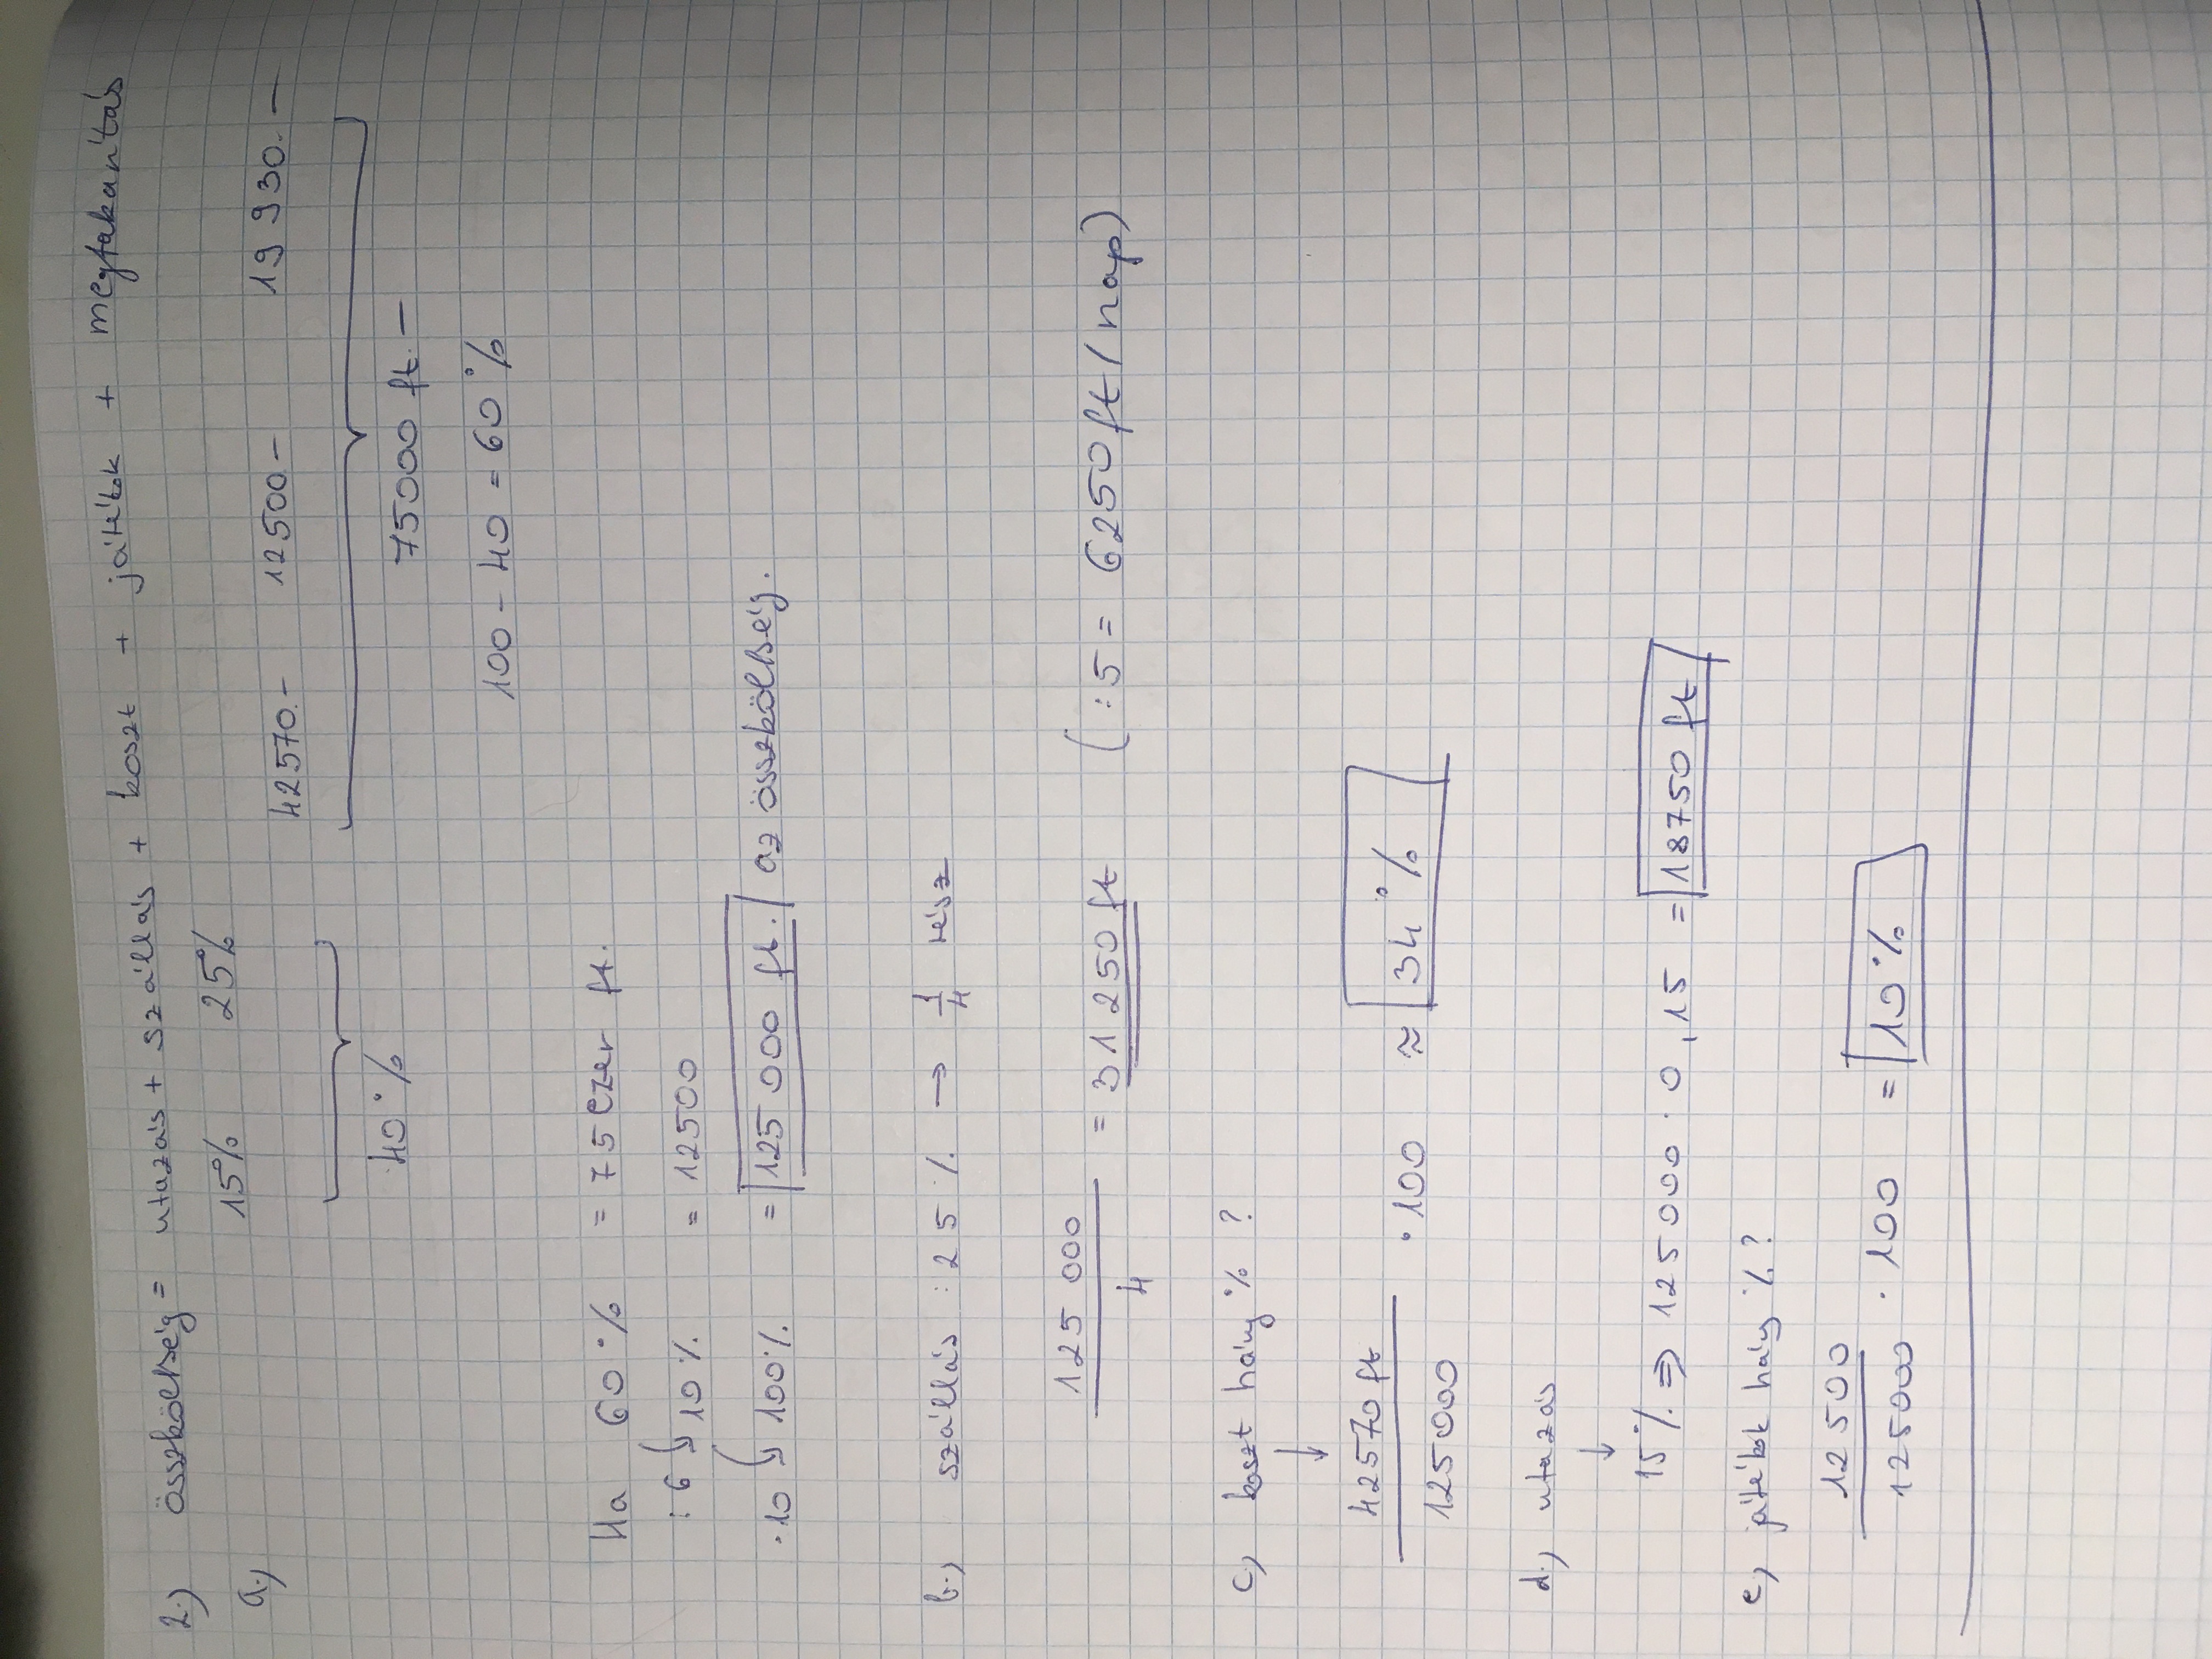 2.) összköltség = utazás + szállás + koszt + játékok + megtakarítás
a.) 15% 25% 42570.- 12500.- 19 930.-
40% 75000 ft.-
100 - 40 = 60%
Ha 60% = 75 ezer ft.
:6 10% = 12500
·10 100% = 125 000 ft. az összköltség.
b.) szállás : 25% → 1/4 rész
125 000 / 4 = 31 250 ft (:5 = 6250 ft/nap)
c.) koszt hány % ?
↓
42570 ft / 125000 · 100 ≈ 34%
d.) utazás
↓
15% ⇒ 125 000 · 0,15 = 18750 ft
e.) játékok hány % ?
12500 / 125000 · 100 = 10%